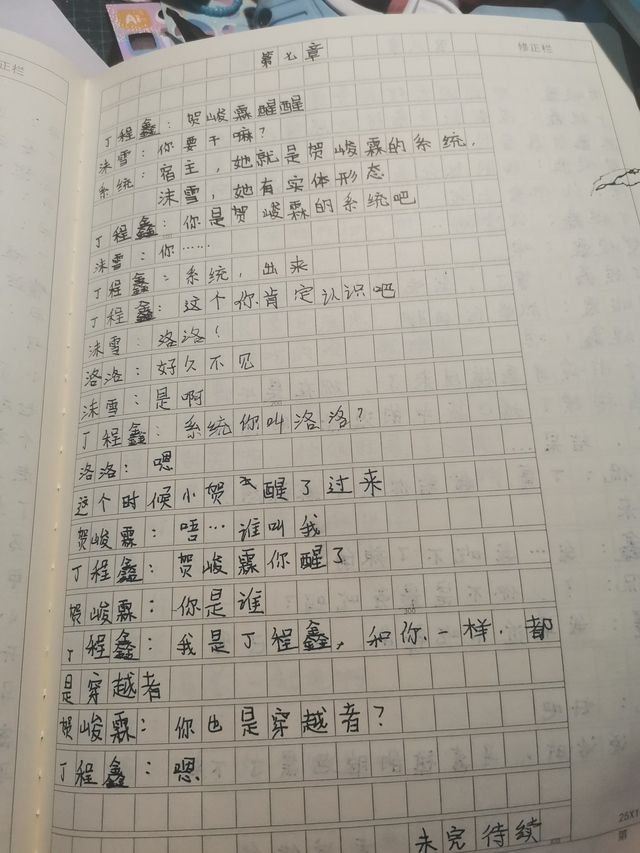 修正栏
修正栏
Ai
第七章
丁程鑫：贺峻霖醒醒
沫雪：你要干嘛？
系统：宿主，她就是贺峻霖的系统，
沫雪，她有实体形态
丁程鑫：你是贺峻霖的系统吧
沫雪：你……
丁程鑫：系统，出来
丁程鑫：这个你肯定认识吧
沫雪：洛洛！
洛洛：好久不见
沫雪：是啊
丁程鑫：系统你叫洛洛？
洛洛：嗯
这个时候小贺醒了过来
贺峻霖：唔…谁叫我
丁程鑫：贺峻霖你醒了
贺峻霖：你是谁
丁程鑫：我是丁程鑫，和你一样，都
是穿越者
贺峻霖：你也是穿越者？
丁程鑫：嗯
未完待续
第